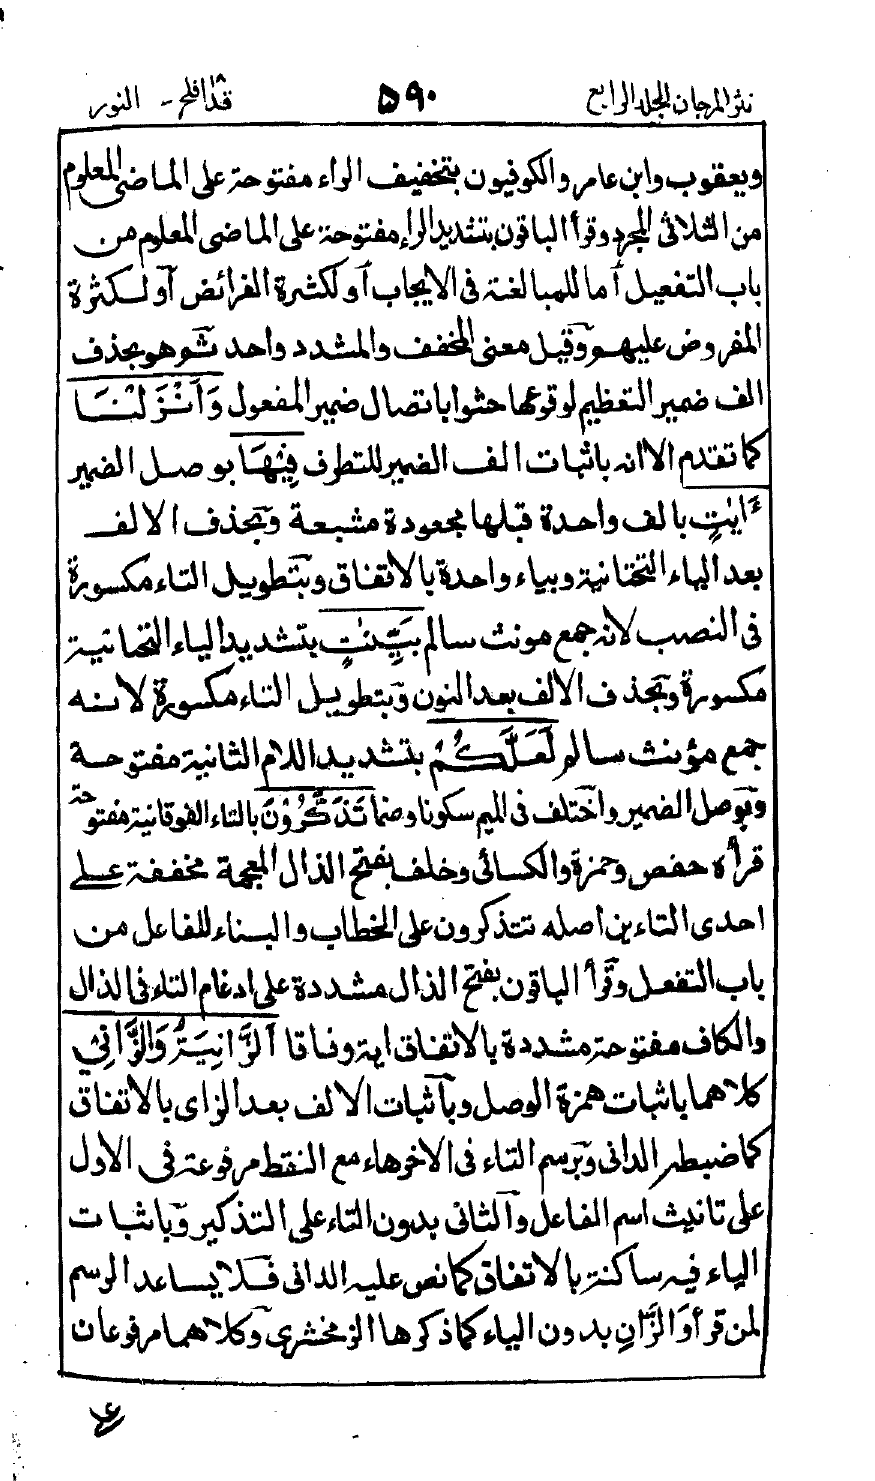 نثر المرجان المجلد الرابع ۵۹۰ قدافلح - النور
ويعقوب وابن عامر والكوفيون بتخفيف الراء مفتوحة على الماضى المعلوم
من الثلاثى المجرد وقرأ الباقون بتشديد الراء مفتوحة على الماضى المعلوم من
باب التفعيل أما للمبالغة فى الايجاب أو لكثرة الفرائض أو لكثرة
المفروض عليهم وقيل معنى المخفف والمشدد واحد ثم وهو بحذف
الف ضمير التعظيم لوقوعها حشوا باتصال ضمير المفعول وَأَنْزَلْنَا
كما تقدم الا انه باثبات الف الضمير للتطرف فِيْهَا بوصل الضمير
ءَايٰتٍ بالف واحدة قبلها مجعودة مشبعة وبحذف الالف
بعد الياء التحتانية وبياء واحدة بالاتفاق وبتطويل التاء مكسورة
فى النصب لانه جمع مونث سالم بَيِّنٰتٍ بتشديد الياء التحتانية
مكسورة وبحذف الالف بعد النون وبتطويل التاء مكسورة لانه
جمع مؤنث سالم لَعَلَّكُمْ بتشديد اللام الثانية مفتوحة
وبوصل الضمير واختلف فى الميم سكونا وضما تَذَكَّرُوْنَ بالتاء الفوقانية مفتوحة
قرأه حفص وحمزة والكسائى وخلف بفتح الذال المعجمة مخففة على
احدى التاءين اصله تتذكرون على الخطاب والبناء للفاعل من
باب التفعل وقرأ الباقون بفتح الذال مشددة على ادغام التاء فى الذال
والكاف مفتوحة مشددة بالاتفاق اية وفاقا اَلزَّانِيَةُ وَالزَّانِيْ
كلاهما باثبات همزة الوصل وباثبات الالف بعد الزاى بالاتفاق
كما ضبطه الدانى وبرسم التاء فى الاخر هاء مع النقط مرفوعة فى الاول
على تانيث اسم الفاعل والثانى بدون التاء على التذكير وباثبات
الياء فيه ساكنة بالاتفاق كما نص عليه الدانى فلا يساعد الرسم
لمن قرأ وَالزَّانِ بدون الياء كما ذكرها الزمخشرى وكلاهما مرفوعان